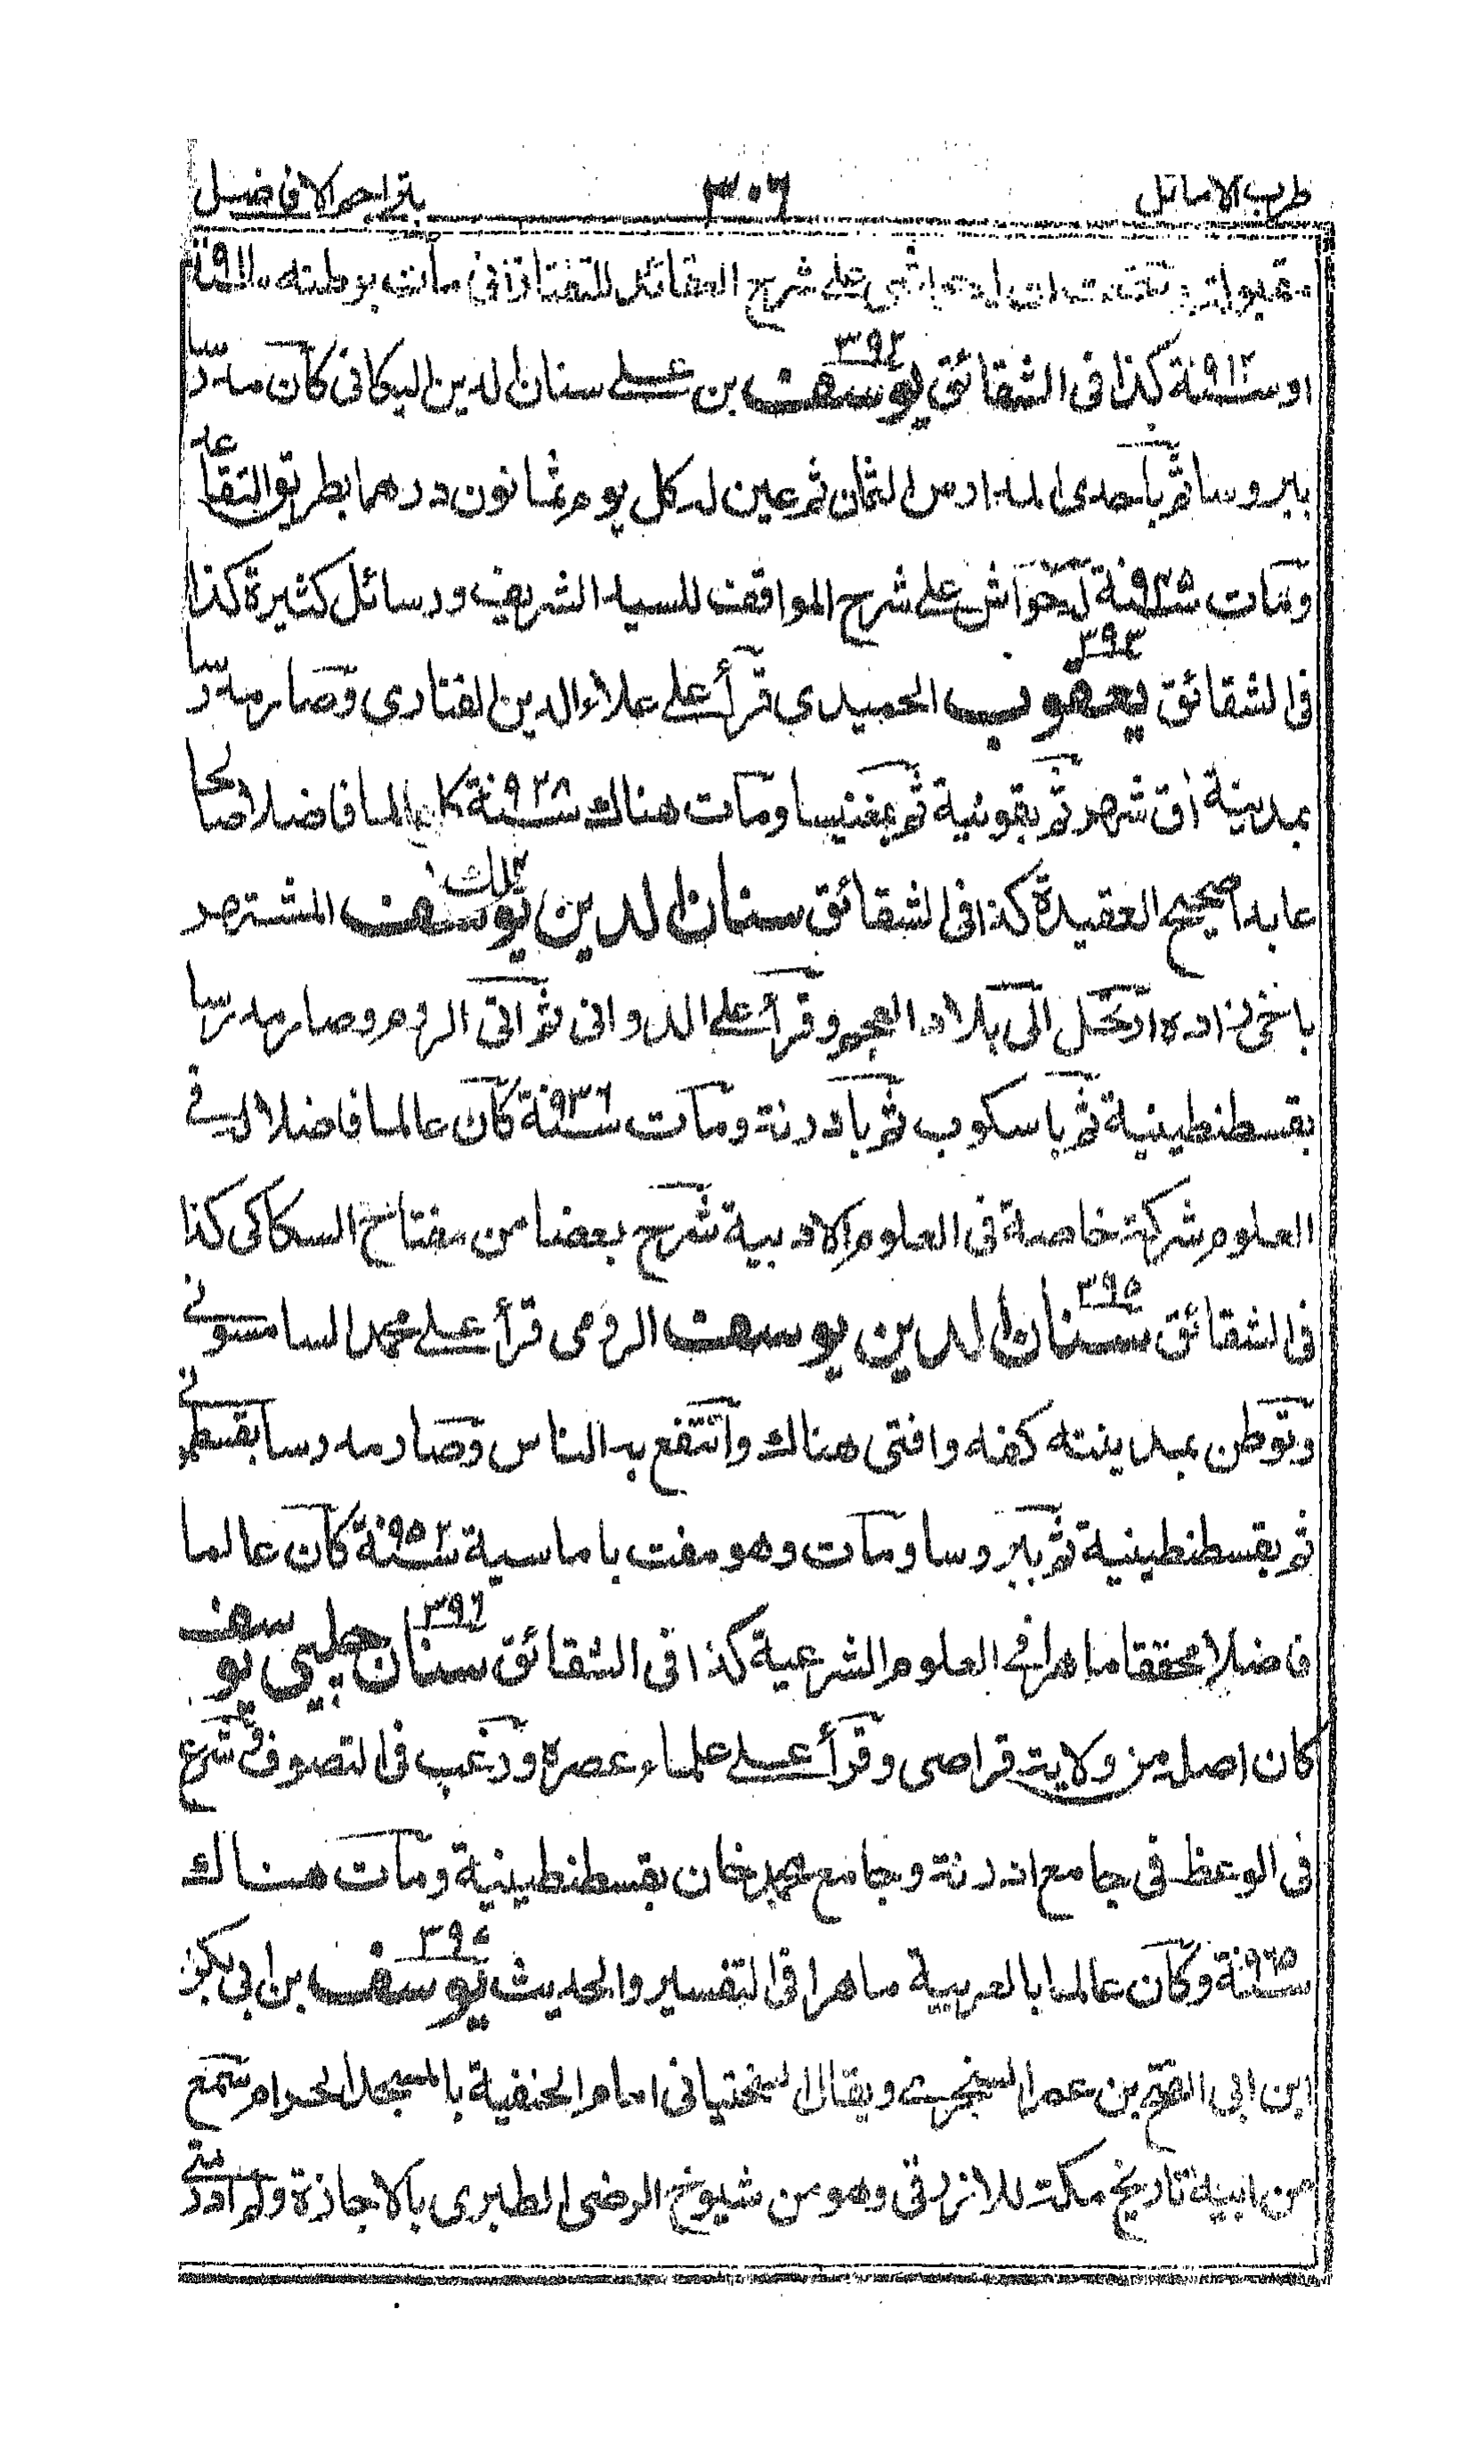 طرب الاماثل ٣٠٦ بتراجم الافاضل
على شرح العقائد للتفتازانى مات بوطنه سنة ٩١١
او سنة ٩١٢ كذا فى الشقائق ٣٩٢ يوسف بن على سنان الدين اليكانى كان مدرسا
ببروسا ثم باحدى المدارس الثمان ثم عين له كل يوم ثمانون درهما بطريق التقاعد
ومات سنة ٩٤٥ له حواش على شرح المواقف للسيد الشريف ورسائل كثيرة كذا
فى الشقائق ٣٩٣ يعقوب الحميدى قرأ على علاء الدين الفنارى وصار مدرسا
بمدينة اق شهر ثم بقونية ثم بمغنيسا ومات هناك سنة ٩٢٨ كان عالما فاضلا صالحا
عابدا صحيح العقيدة كذا فى الشقائق سنان الدين يوسف المشتهر
باخى زاده ارتحل الى بلاد العجم وقرأ على الدوانى ثم اتى الروم وصار مدرسا
بقسطنطينية ثم باسكوب ثم بادرنة ومات سنة ٩٣٦ كان عالما فاضلا له فى
العلوم شركة خاصة فى العلوم الادبية شرح بعضا من مفتاح السكاكى كذا
فى الشقائق ٣٩٥ سنان الدين يوسف الرومى قرأ على محمد السامسونى
وتوطن بمدينته كفه وافتى هناك وانتفع به الناس وصار مدرسا بقسطمونى
ثم بقسطنطينية ثم ببروسا ومات وهو مفت باماسية سنة ٩٥٢ كان عالما
فاضلا محققا ماهرا فى العلوم الشرعية كذا فى الشقائق ٣٩٦ سنان چلبى يوسف
كان اصله من ولاية قراصى وقرأ على علماء عصره ورغب فى التصوف ثم شرع
فى الوعظ فى جامع ادرنة وجامع محمد خان بقسطنطينية ومات هناك
سنة ٩٦٥ وكان عالما بالعربية ماهرا فى التفسير والحديث يوسف بن ابى بكر
ابن ابى الفتح بن عمر السنجرى ويقال السختيانى امام الحنفية بالمسجد الحرام سمع
من ابيه تاريخ مكة للازرقى وهو من شيوخ الرضى الطبرى بالاجازة ولم ادر متى